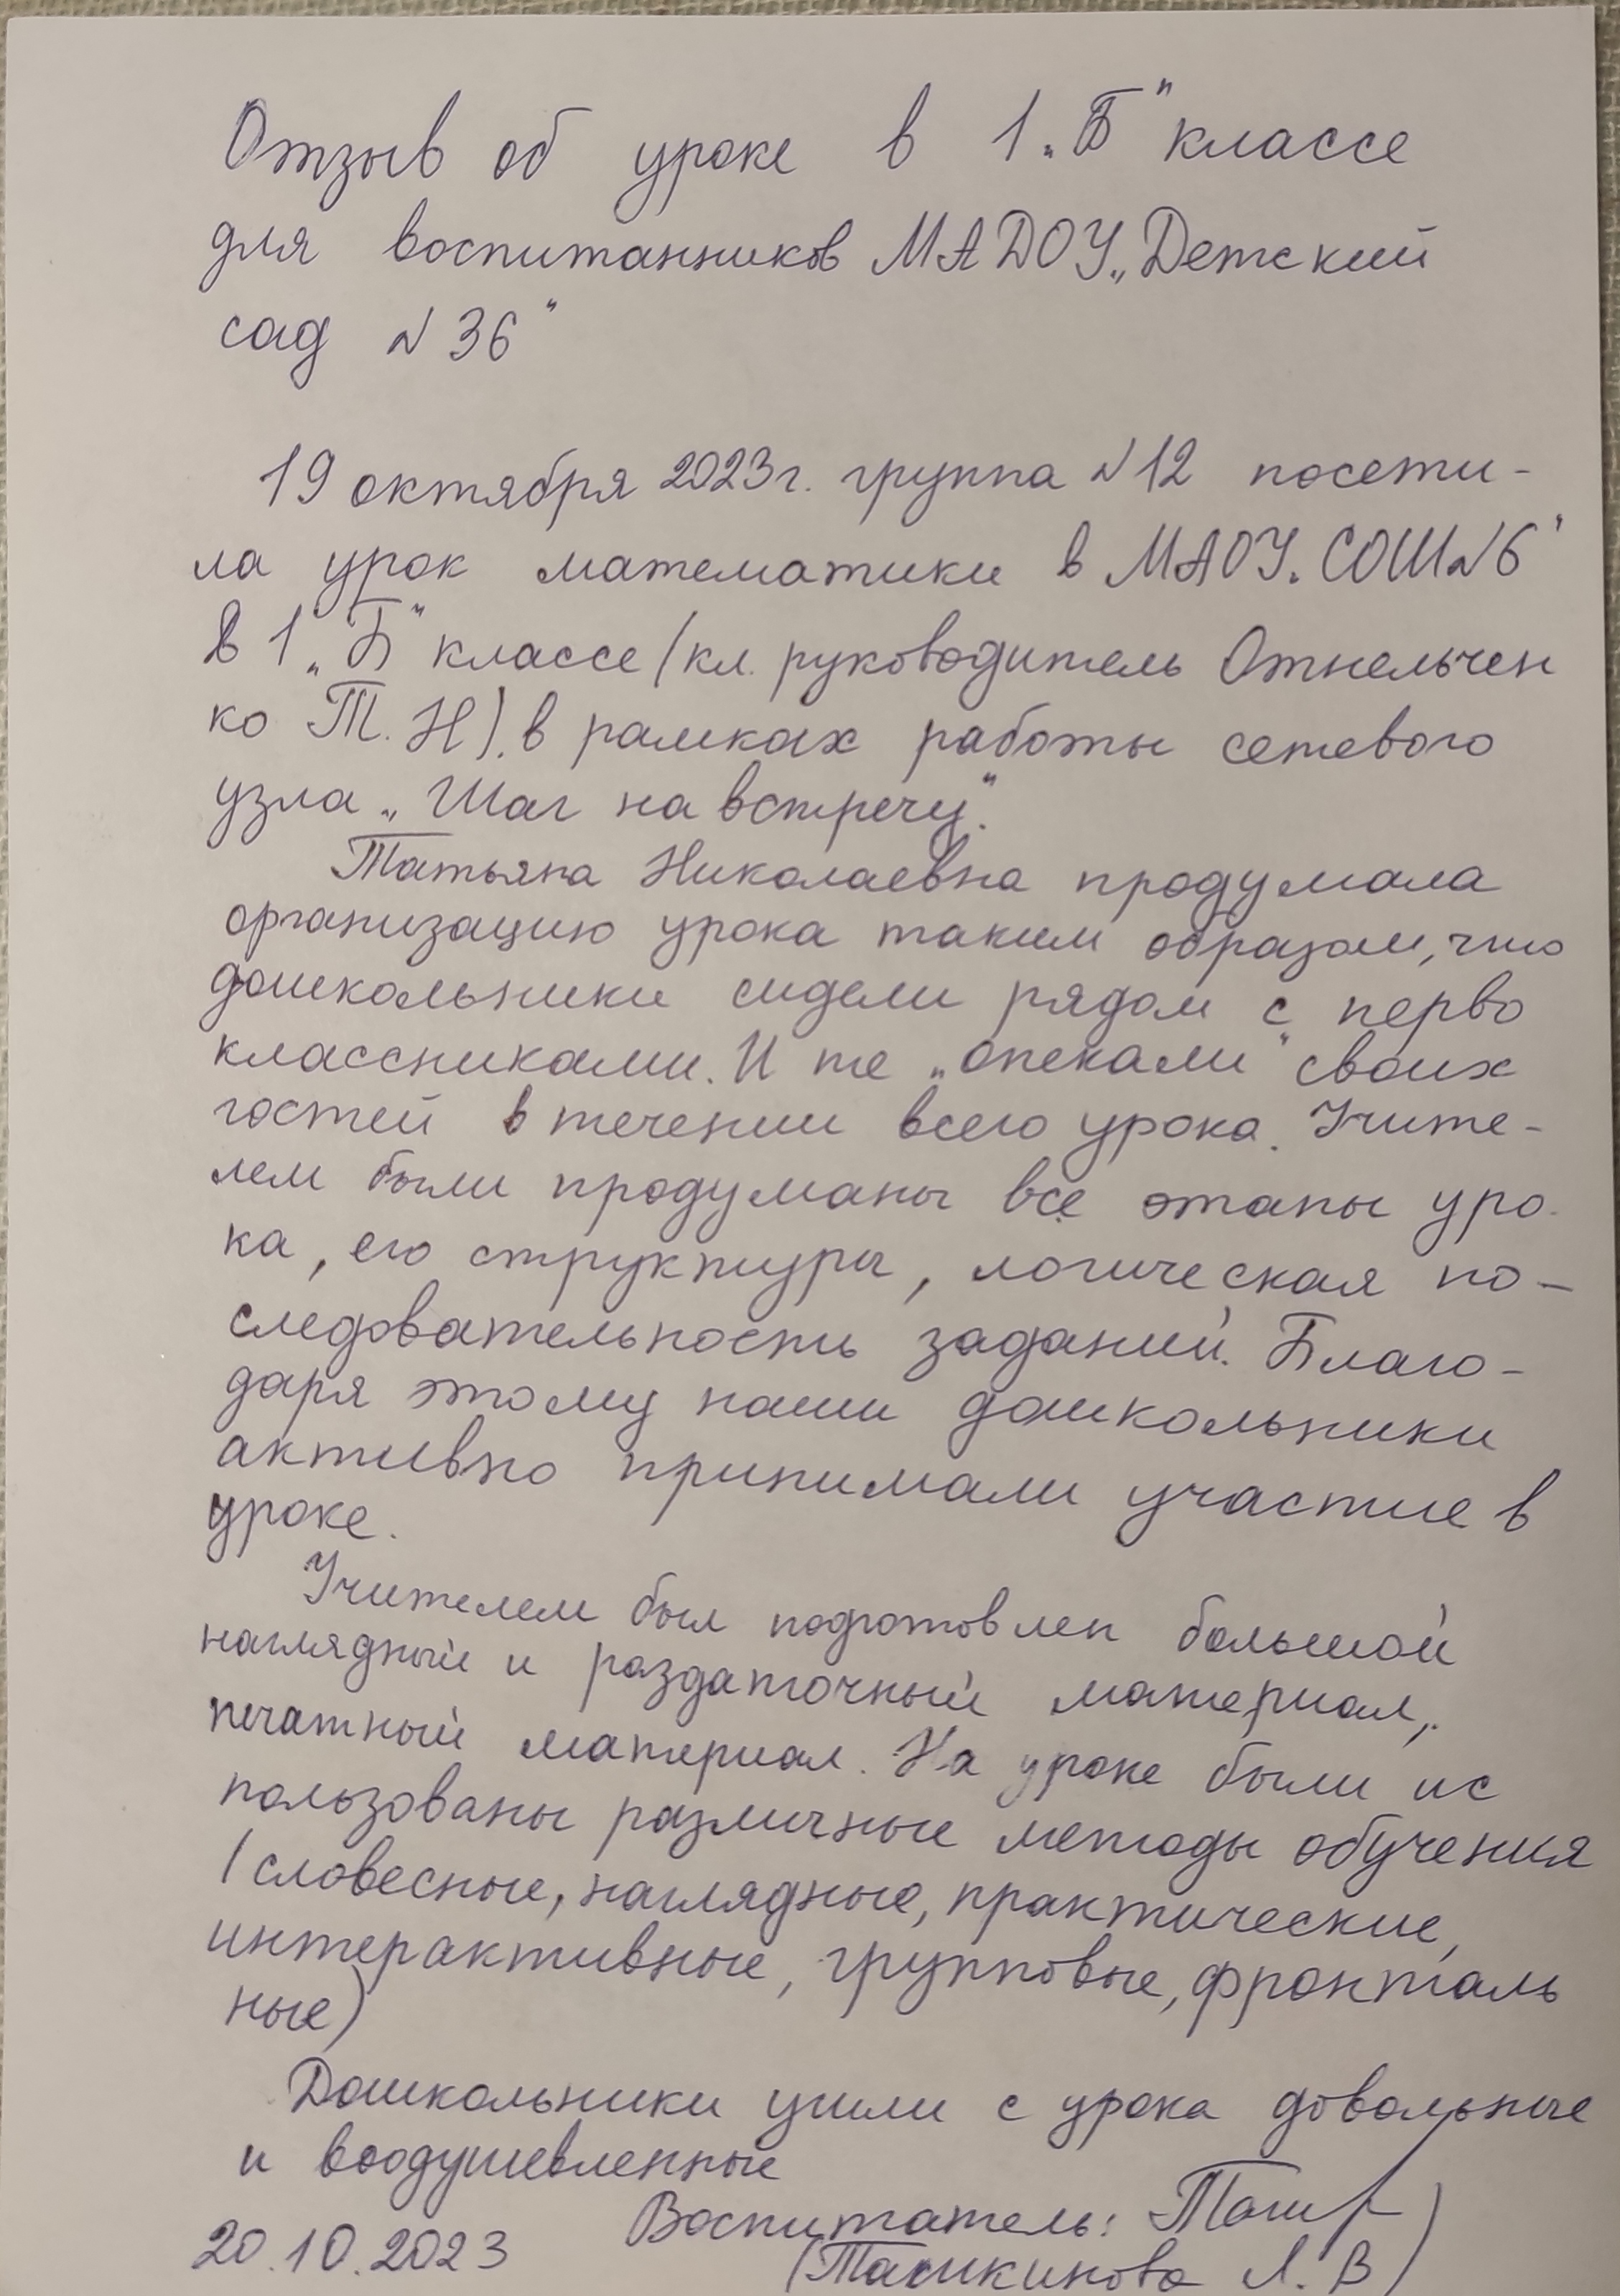 Отзыв об уроке в 1 „Б" классе
для воспитанников МАДОУ „Детский
сад №36"
19 октября 2023г. группа №12 посети-
ла урок математики в МАОУ „СОШ№6"
в 1 „Б" классе (кл. руководитель Отнельчен
ко Т. Н). в рамках работы сетевого
узла „Шаг на встречу".
Татьяна Николаевна продумала
организацию урока таким образом, что
дошкольники сидели рядом с перво
классниками. И те „опекали" своих
гостей в течении всего урока. Учите-
лем были продуманы все этапы уро-
ка, его структуры, логическая по-
следовательность заданий. Благо-
даря этому наши дошкольники
активно принимали участие в
уроке.
Учителем был подготовлен большой
наглядный и раздаточный материал,
печатный материал. На уроке были ис
пользованы различные методы обучения
(словесные, наглядные, практические,
интерактивные, групповые, фронталь
ные)
Дошкольники ушли с урока довольные
и воодушевленные
Воспитатель:
20.10.2023 (Ташкинова Л. В)